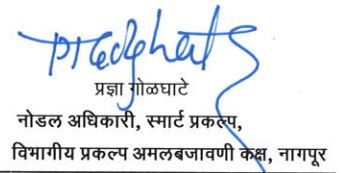 प्रज्ञा गोळघाटे
नोडल अधिकारी, स्मार्ट प्रकल्प,
विभागीय प्रकल्प अमलबजावणी कक्ष, नागपूर